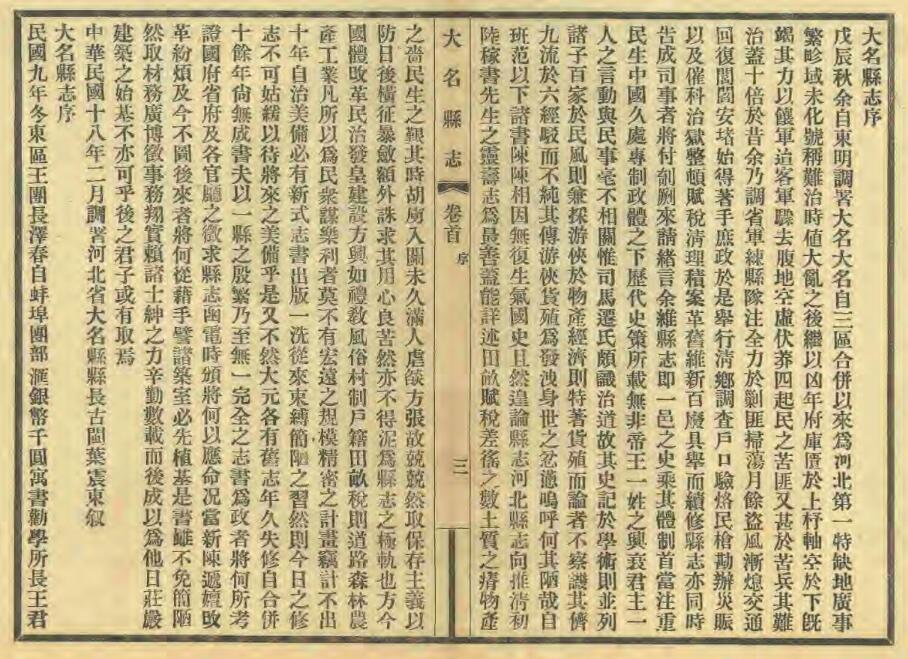 大名縣志序
戊辰秋余自東明調署大名大名自三區合併以來為河北第一特缺地廣事
繁畛域未化號稱難治時値大亂之後繼以凶年府庫匱於上杼軸空於下旣
竭其力以饟軍迨客軍驟去腹地空虛伏莽四起民之苦匪又甚於苦兵其難
治蓋十倍於昔余乃調省軍練縣隊注全力於剿匪掃蕩月餘盜風漸熄交通
回復閭閻安堵始得著手庶政於是舉行清鄉調査戶口驗烙民槍勘辦災賑
以及催科治獄整頓賦稅清理積案革舊維新百廢具舉而續修縣志亦同時
告成司事者將付剞劂來請緒言余維縣志即一邑之史乘其體制首當注重
民生中國久處專制政體之下歷代史策所載無非帝王一姓之興衰君主一
人之言動與民事毫不相關惟司馬遷氏頗識治道故其史記於學術則並列
諸子百家於民風則兼採游俠於物產經濟則特著貨殖而論者不察譏其儕
九流於六經駁而不純其傳游俠貨殖為發洩身世之忿懣嗚呼何其陋哉自
班范以下諸書陳陳相因無復生氣國史且然遑論縣志河北縣志向推清初
陸稼書先生之靈壽志為最善蓋能詳述田畝賦稅差徭之數土質之瘠物產
大名縣志
卷首
序
三
之嗇民生之艱其時胡虜入關未久滿人虐燄方張故兢兢然取保存主義以
防日後橫征暴斂額外誅求其用心良苦然亦不得泥為縣志之極軌也方今
國體改革民治發皇建設方興如禮教風俗村制戶籍田畝稅則道路森林農
產工業凡所以為民衆謀樂利者莫不有宏遠之規模精密之計畫竊計不出
十年自治美備必有新式志書出版一洗從來束縛簡陋之習然則今日之修
志不可姑緩以待將來之美備乎是又不然大元各有舊志年久失修自合併
十餘年尙無成書夫以一縣之殷繁乃至無一完全之志書為政者將何所考
證國府省府及各官廳之徵求縣志函電時頒將何以應命况當新陳遞嬗改
革紛煩及今不圖後來者將何從藉手譬諸築室必先植基是書雖不免簡陋
然取材務廣博徵事務翔實賴諸士紳之力辛勤數載而後成以為他日莊嚴
建築之始基不亦可乎後之君子或有取焉
中華民國十八年二月調署河北省大名縣縣長古閩葉震東叙
大名縣志序
民國九年冬東區王團長澤春自蚌埠團部滙銀幣千圓寓書勸學所長王君